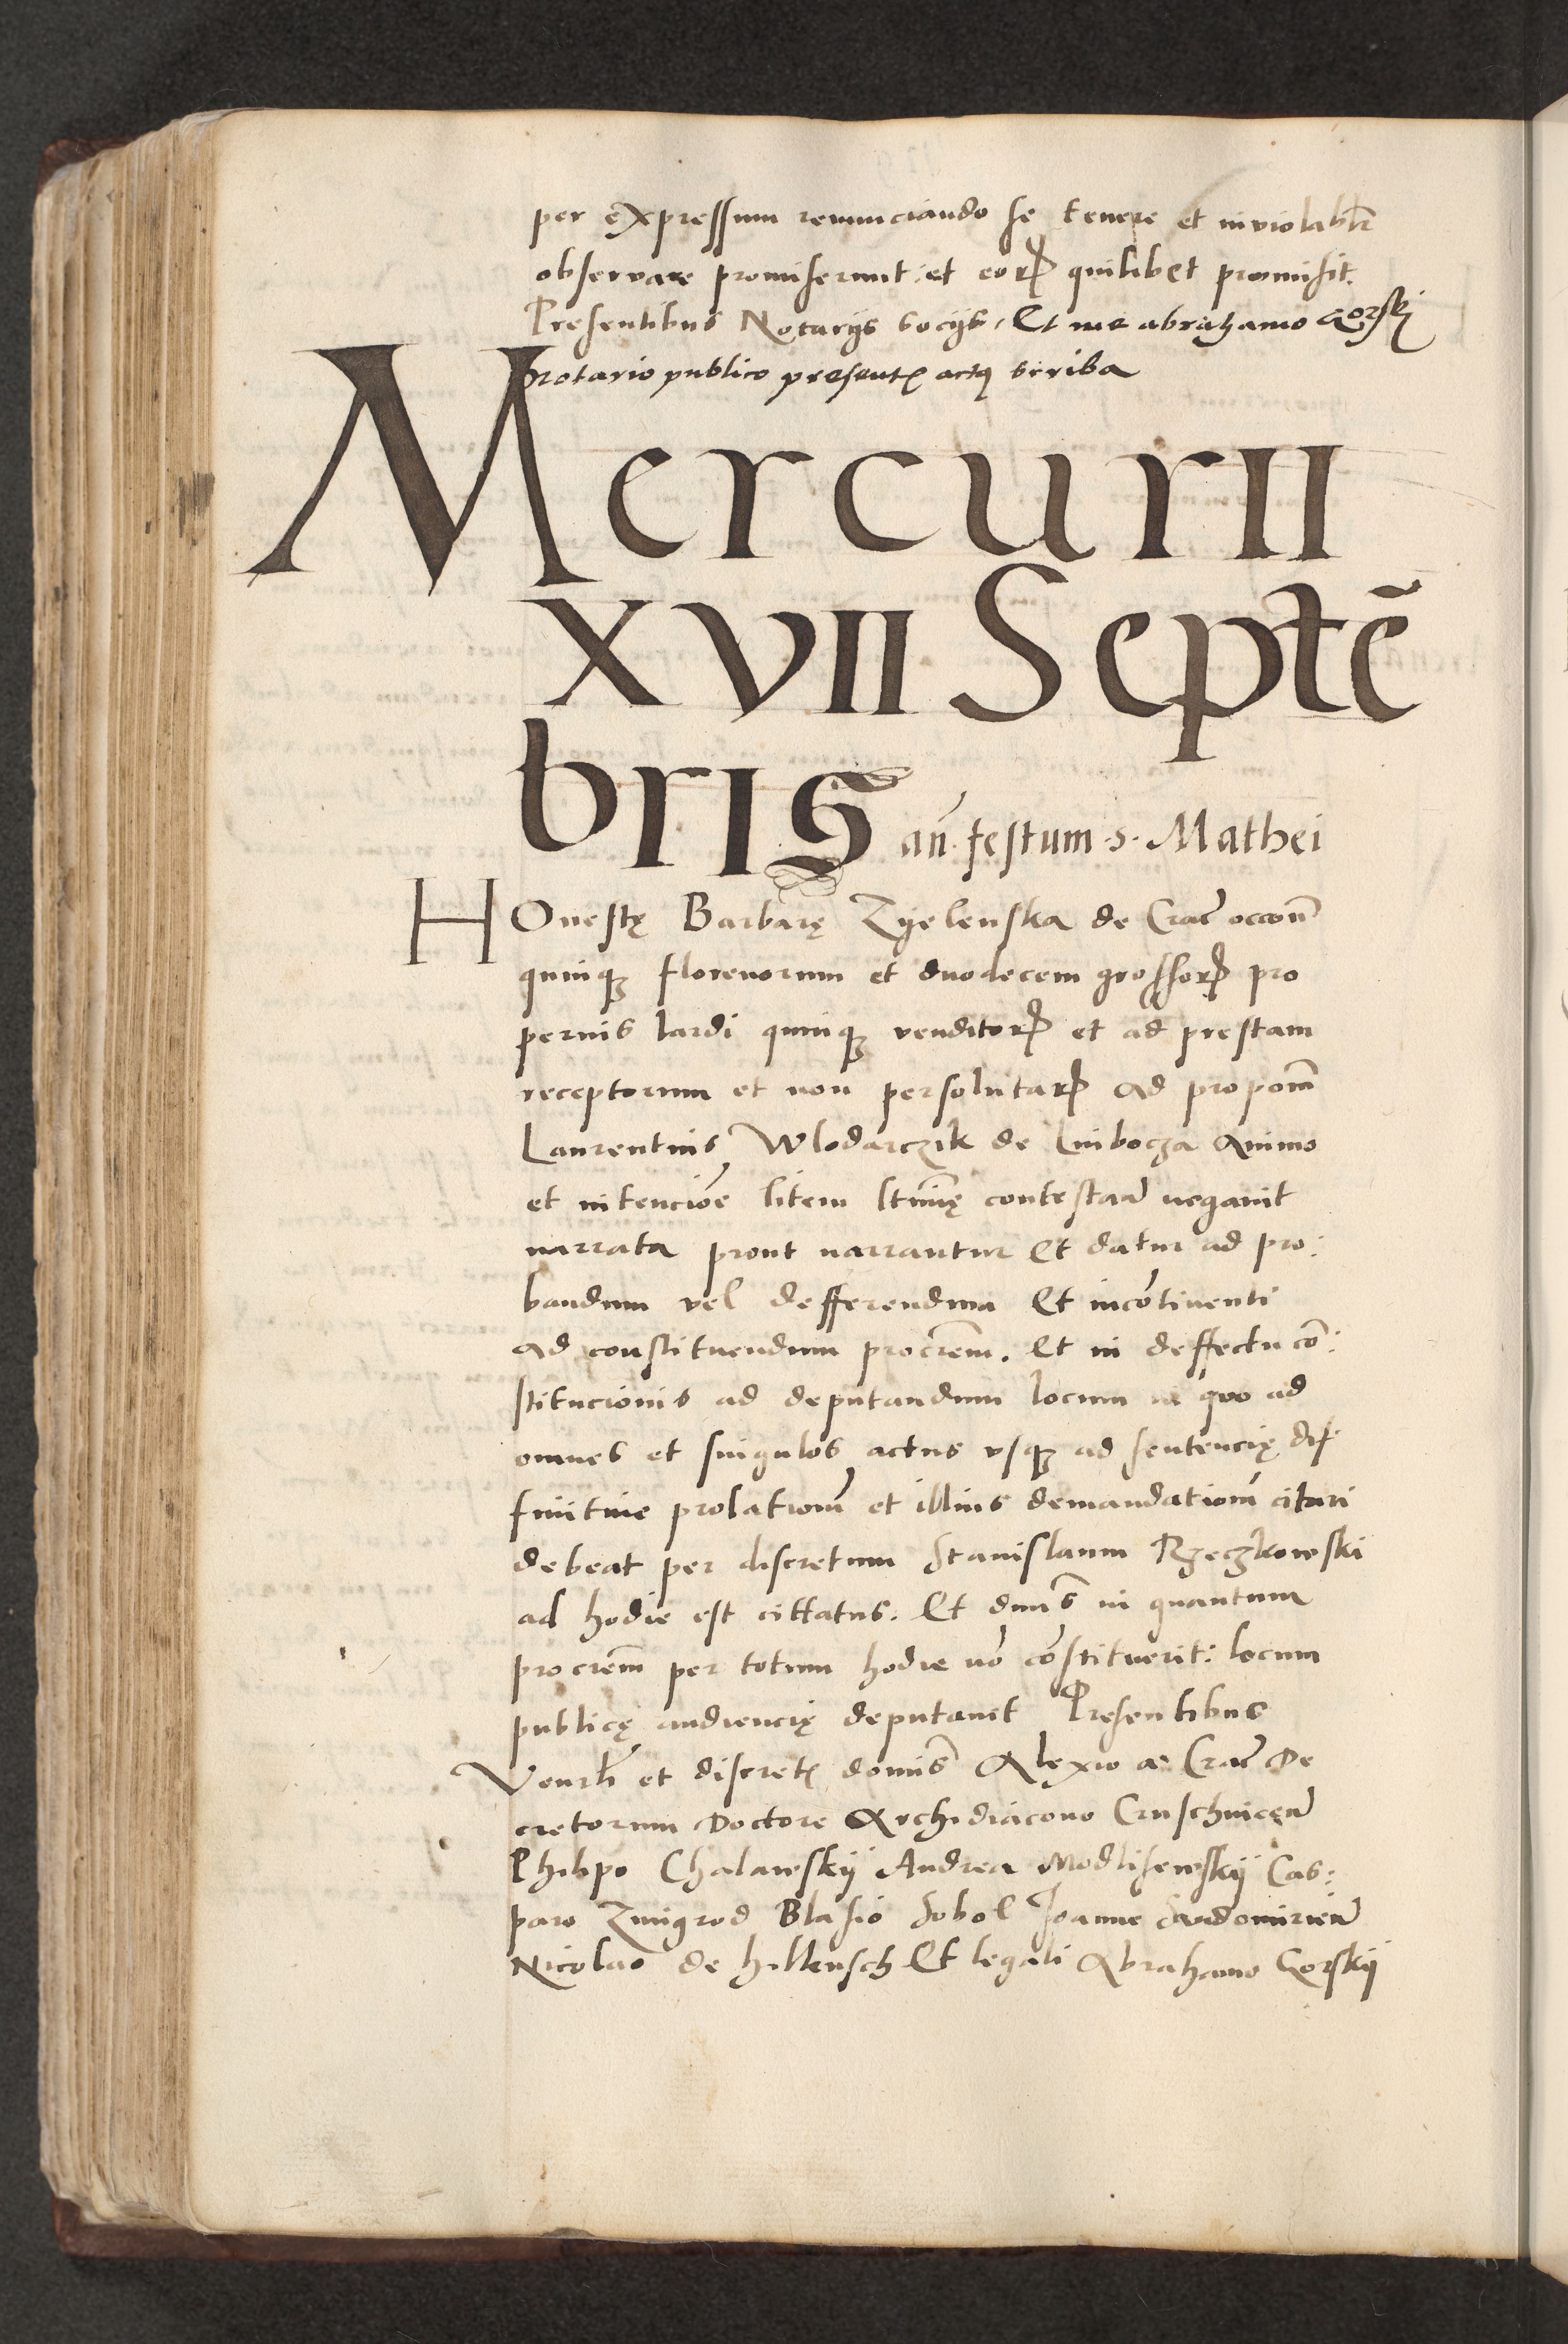 per expressum renunciando se tenere et inviolablr̃
observare promiserunt: et eorꝝ quilibet promisit.
Presentibus Notarijs socijs, Et me abrahamo Gorskj
Notario publico presentꝭ actꝯ scriba
Mercurii
XVII Septẽ
bris añ. festum .s. Mathei
HOnestę Barbarę Zyelenska de Crac̃ occon̄
quinqꝫ florenorum et duodecem grossorꝝ pro
pernis lardi quinqꝫ venditorꝝ et ad prestam
receptorum et non persolutarꝝ ad propom̄
Laurentius Wlodarczik de Luibocza Animo
et intencio͞e litem contestañ negavit
narrata prout narrantur Et datur ad pro:
bandum vel defferendum Et inco͞tinenti
ad constituendum procrem̄. Et in deffectu co͞:
stitucionis ad deputandum locum in quo ad
omnes et singulos actus vsqꝫ ad sentencię dif
finitive prolationē et illius demandationē citari
debeat per discretum Stanislaum Rzeczkowski
ad hodie est cittatus. Et dnūs in quantum
procrem̄ per totum hodie no͞ co͞stituerit: locum
publicę audiencię deputavit Presentibus
Venerlī et discretꝭ domīs Alexio ac Crac̃ De
cretorum Doctore Archidiacono Cruschuiceñ
Philipo Chalawskij Andrea Modlisewskij Cas:
paro Zmigrod Blasio Sobol Joanne Sandomirieñ
Nicolao de hillensch Et legali Abrahamo Gorskij